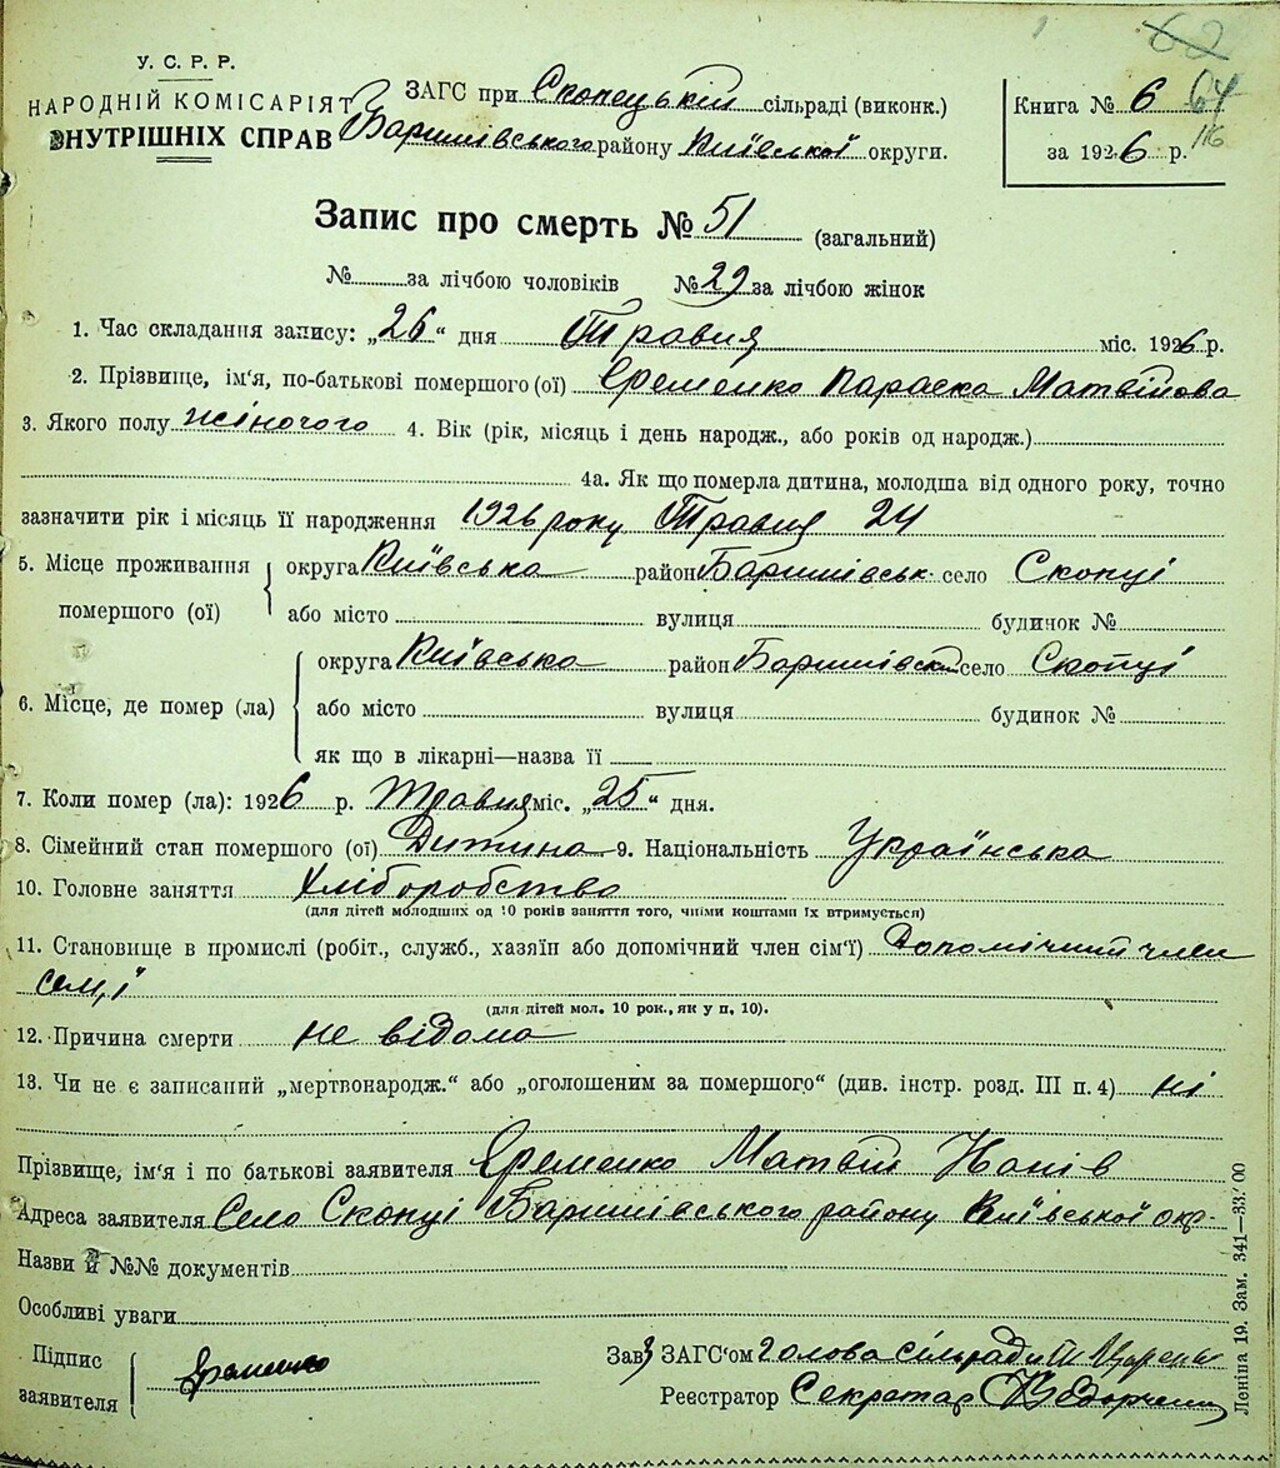 62
У. С. Р. Р.
НАРОДНІЙ КОМІСАРІЯТ
ВНУТРІШНІХ СПРАВ
ЗАГС при Скопецькій сільраді (виконк.)
Баришівського району Київської округи.
Книга № 6 64
за 1926 р. 116
Запис про смерть № 51 (загальний)
№ за лічбою чоловіків № 29 за лічбою жінок
1. Час складання запису: „26“ дня Травня міс. 1926 р.
2. Прізвище, ім‘я, по-батькові помершого (ої) Єременко Параска Матвійова
3. Якого полу жіночого 4. Вік (рік, місяць і день народж., або років од народж.)
4а. Як що померла дитина, молодша від одного року, точно
зазначити рік і місяць її народження 1926 року Травня 24
5. Місце проживання помершого (ої) округа Київська район Баришівськ. село Скопці
або місто вулиця будинок №
6. Місце, де помер (ла) округа Київська район Баришівськ село Скопці
або місто вулиця будинок №
як що в лікарні—назва її
7. Коли помер (ла): 1926 р. Травня міс. „25“ дня.
8. Сімейний стан помершого (ої) Дитина 9. Національність Українська
10. Головне заняття Хліборобство
(для дітей молодших од 10 років заняття того, чиїми коштами їх втримується)
11. Становище в промислі (робіт., служб., хазяїн або допомічний член сім‘ї) Допомічний член
сем,ї
(для дітей мол. 10 рок., як у п. 10).
12. Причина смерти не відома
13. Чи не є записаний „мертвонародж.“ або „оголошеним за помершого“ (див. інстр. розд. III п. 4) ні
Прізвище, ім‘я і по батькові заявителя Єременко Матвій
Адреса заявителя Село Скопці Баришівського району Київської окр.
Назви й №№ документів
Особливі уваги
Підпис заявителя Єременко
Зав. ЗАГС‘ом Голова сільради
Реєстратор Секретар
Леніна 19. Зам. 341—33.00